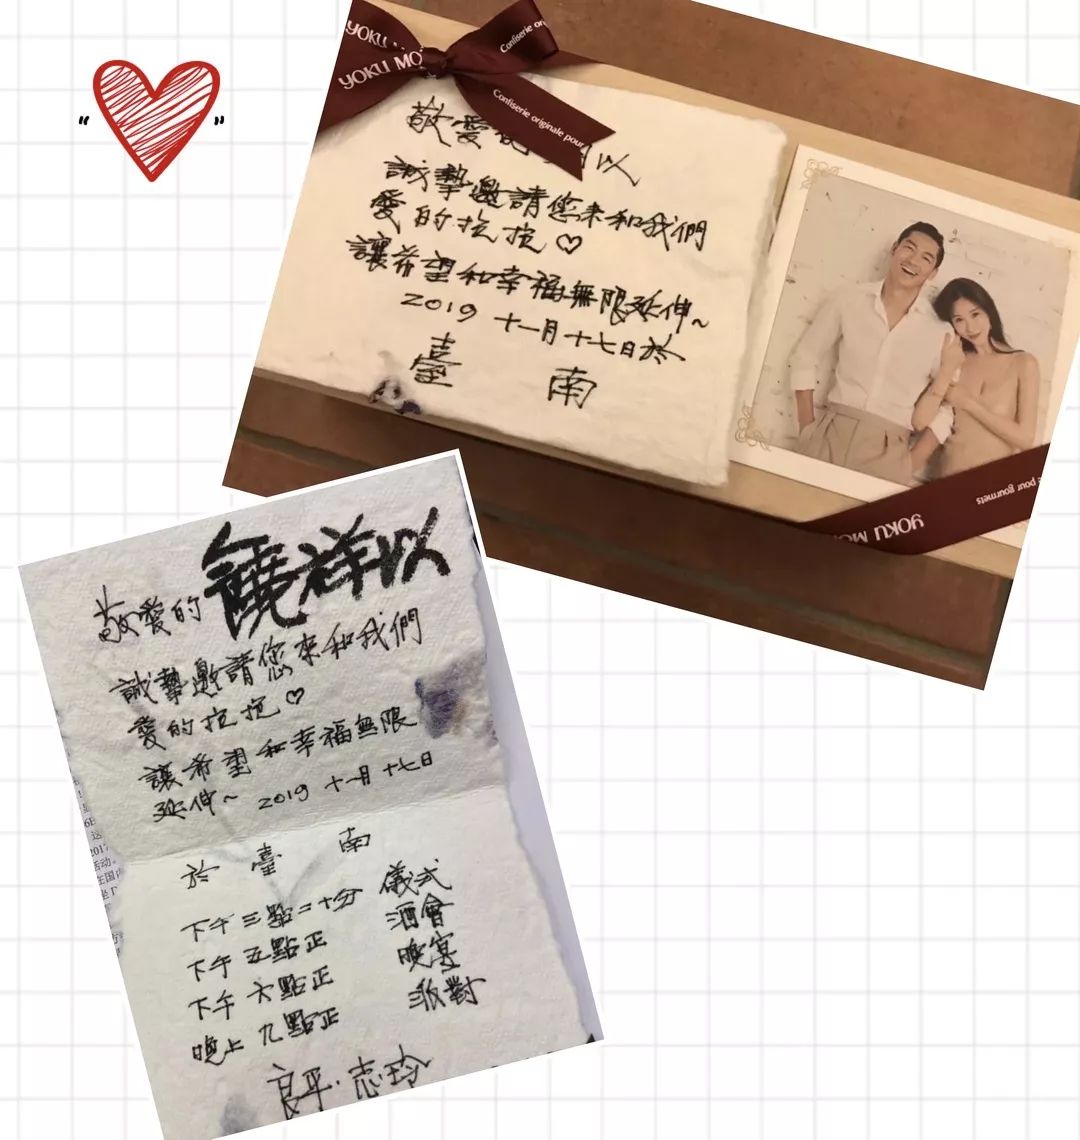 “ ”
YOKU MO
YOKU MO
Confiserie originale
Confiserie originale pour
敬愛
以
誠摯邀請您來和我們
愛的抗抗♡
讓希望和幸福無限延伸~
2019 十一月十七日於
臺 南
YOKU MO
pour gourmets
敬愛的 饒祥以
誠摯邀請您來和我們
愛的抗抗♡
讓希望和幸福無限
延伸~ 2019 十一月十七日
於 臺 南
下午三點二十分 儀式
下午五點正 酒會
下午六點正 晚宴
晚上九點正 派對
良平·志玲
2017
活动
在国内